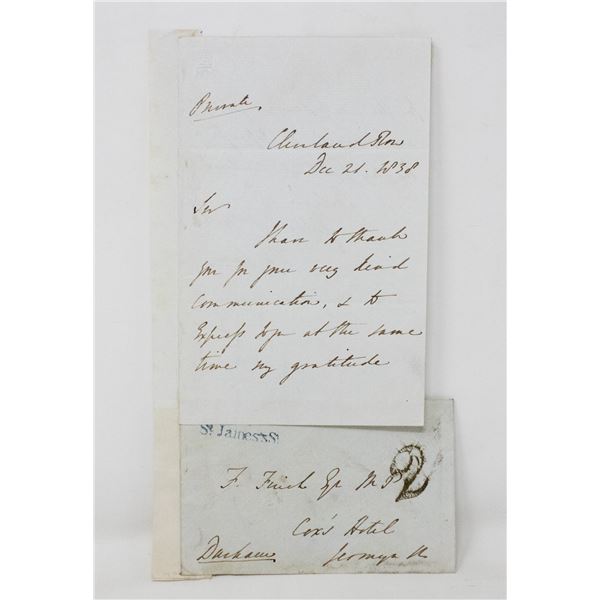 Private
Cleveland Row
Dec 21. 1838
Sir
I have to thank
you for your very kind
communication, & to
Express to you at the same
time my gratitude
St. James's St
2
F. Finch Esqr M P
Cox's Hotel
Durham Jermyn St